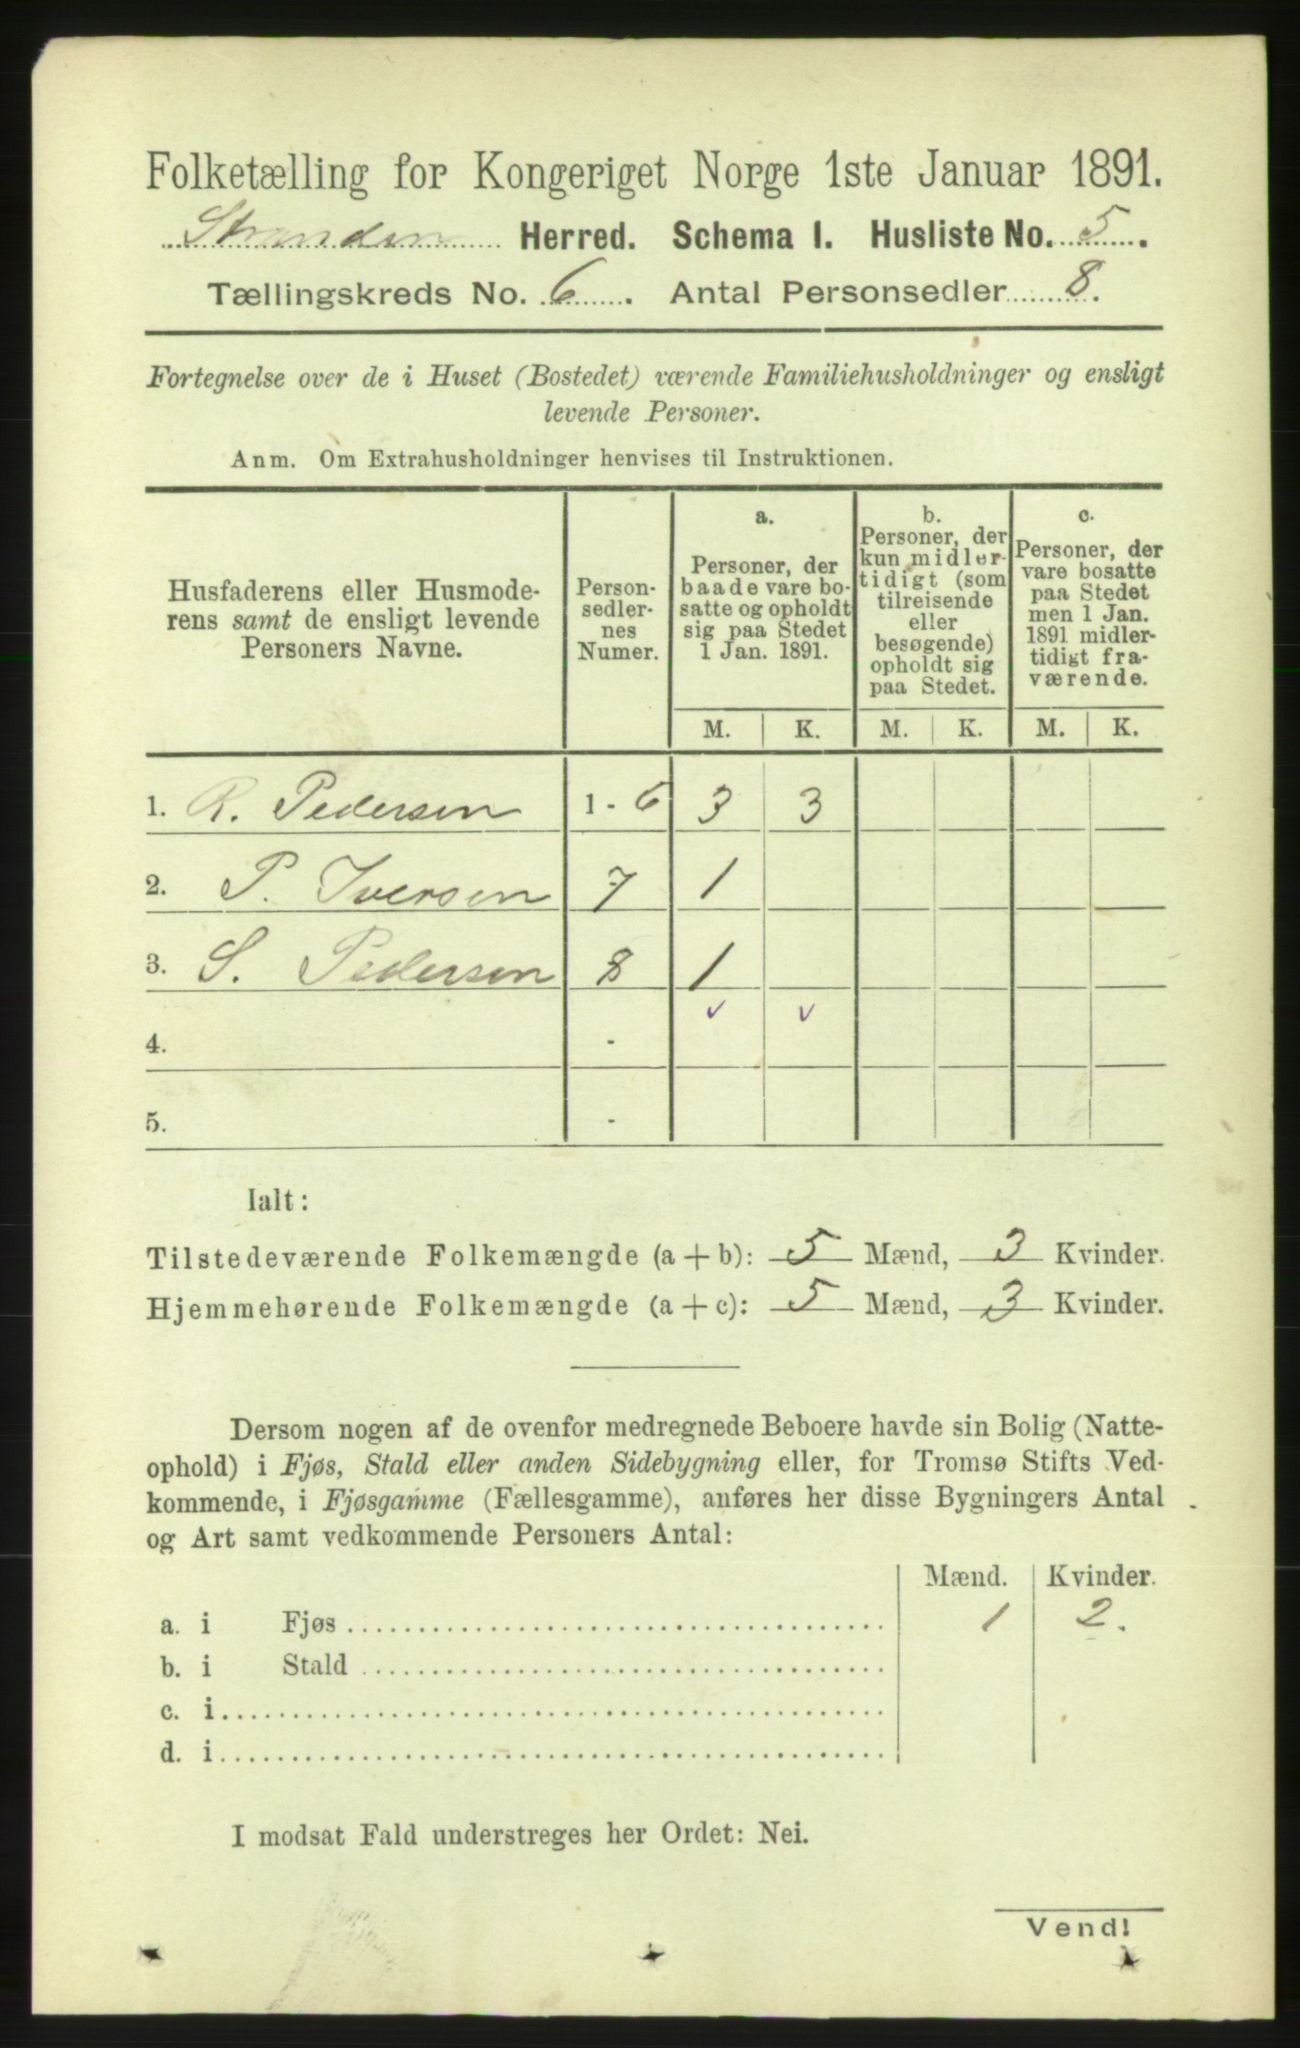 Folketælling for Kongeriget Norge 1ste Januar 1891.
Stranden Herred. Schema I. Husliste No. 5.
Tællingskreds No. 6. Antal Personsedler 8.
Fortegnelse over de i Huset (Bostedet) værende Familiehusholdninger og ensligt
levende Personer.
Anm. Om Extrahusholdninger henvises til Instruktionen.
Husfaderens eller Husmode-
rens samt de ensligt levende
Personers Navne.
Person-
sedler-
nes
Numer.
a.
Personer, der
baade vare bo-
satte og opholdt
sig paa Stedet
1 Jan. 1891.
b.
Personer, der
kun midler-
tidigt (som
tilreisende
eller
besøgende)
opholdt sig
paa Stedet.
c.
Personer, der
vare bosatte
paa Stedet
men 1 Jan.
1891 midler-
tidigt fra-
værende.
M. K. M. K. M. K.
1. R. Pedersen 1 - 6 3 3
2. P. Iversen 7 1
3. S. Pedersen 8 1
4. -
5. -
Ialt:
Tilstedeværende Folkemængde (a + b): 5 Mænd, 3 Kvinder.
Hjemmehørende Folkemængde (a + c): 5 Mænd, 3 Kvinder.
Dersom nogen af de ovenfor medregnede Beboere havde sin Bolig (Natte-
ophold) i Fjøs, Stald eller anden Sidebygning eller, for Tromsø Stifts Ved-
kommende, i Fjøsgamme (Fællesgamme), anføres her disse Bygningers Antal
og Art samt vedkommende Personers Antal:
Mænd. Kvinder.
a. i Fjøs 1 2.
b. i Stald
c. i
d. i
I modsat Fald understreges her Ordet: Nei.
Vend!